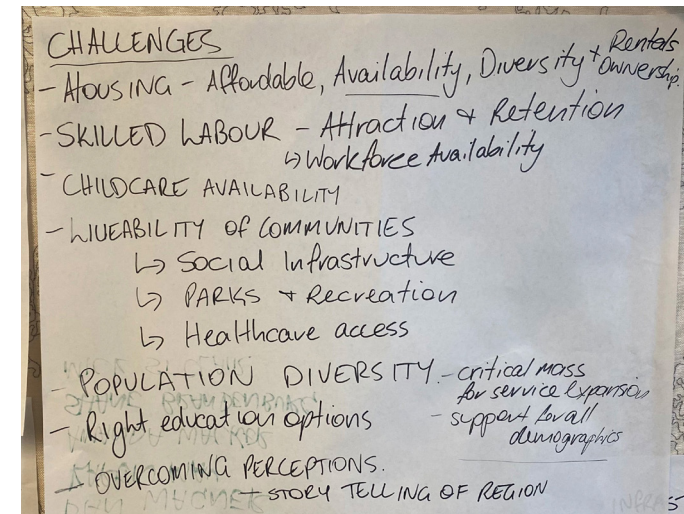 CHALLENGES
- HOUSING - Affordable, Availability, Diversity + Rentals Ownership.
- SKILLED LABOUR - Attraction & Retention
↳ Workforce Availability
- CHILDCARE AVAILABILITY
- LIVEABILITY OF COMMUNITIES
↳ Social Infrastructure
↳ PARKS + Recreation
↳ Healthcare access
- POPULATION DIVERSITY. - critical mass
for service expansion
- Right education options - support for all
demographics
- OVERCOMING PERCEPTIONS.
+ STORY TELLING OF REGION